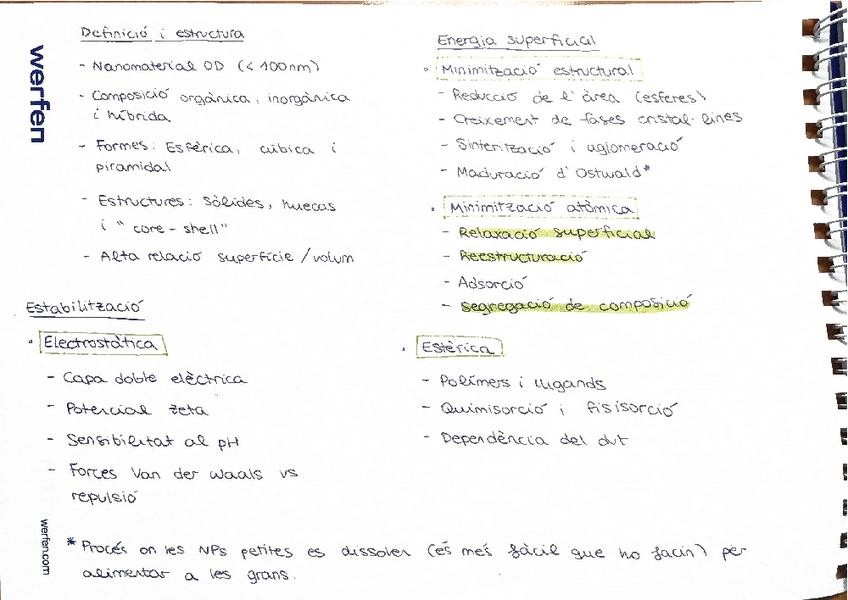 werfen
Definició i estructura
- Nanomaterial 0D (< 100nm)
- Composició orgànica, inorgànica
i híbrida
- Formes: Esfèrica, cúbica i
piramidal
- Estructures: Sòlides, huecas
i "core-shell"
- Alta relació superfície/volum
Energia superficial
· Minimització estructural
- Reducció de l'àrea (esferes)
- Creixement de fases cristal·lines
- Sinterització i aglomeració
- Maduració d'Ostwald*
· Minimització atòmica
- Relaxació superficial
- Reestructuració
- Adsorció
- Segregació de composició
Estabilització
· Electrostàtica
- Capa doble elèctrica
- Potencial zeta
- Sensibilitat al pH
- Forces Van der Waals vs
repulsió
· Estèrica
- Polímers i lligands
- Quimisorció i fisisorció
- Dependència del dvt
* Procés on les NPs petites es dissolen (és més fàcil que ho facin) per
alimentar a les grans.
werfen.com